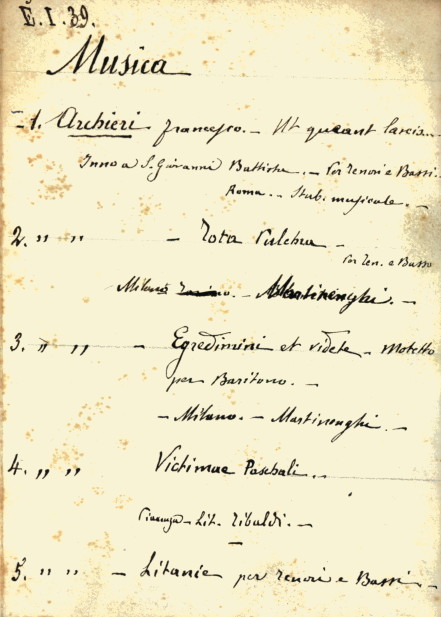 E.I.39.
Musica
1. Archieri Francesco. – Ut queant laxis..
Inno a S. Giovanni Battista. – Per Tenori e Bassi.
Roma – Stab. musicale. –
2. " " – Tota Pulchra –
Per Ten. e Basso
Milano – Martinenghi. –
3. " " – Egredimini et videte – Motetto
per Baritono. –
– Milano. – Martinenghi. –
4. " " Victimae Paschali. –
– Lit. Tibaldi. –
5. " " – Litanie per Tenori e Bassi –